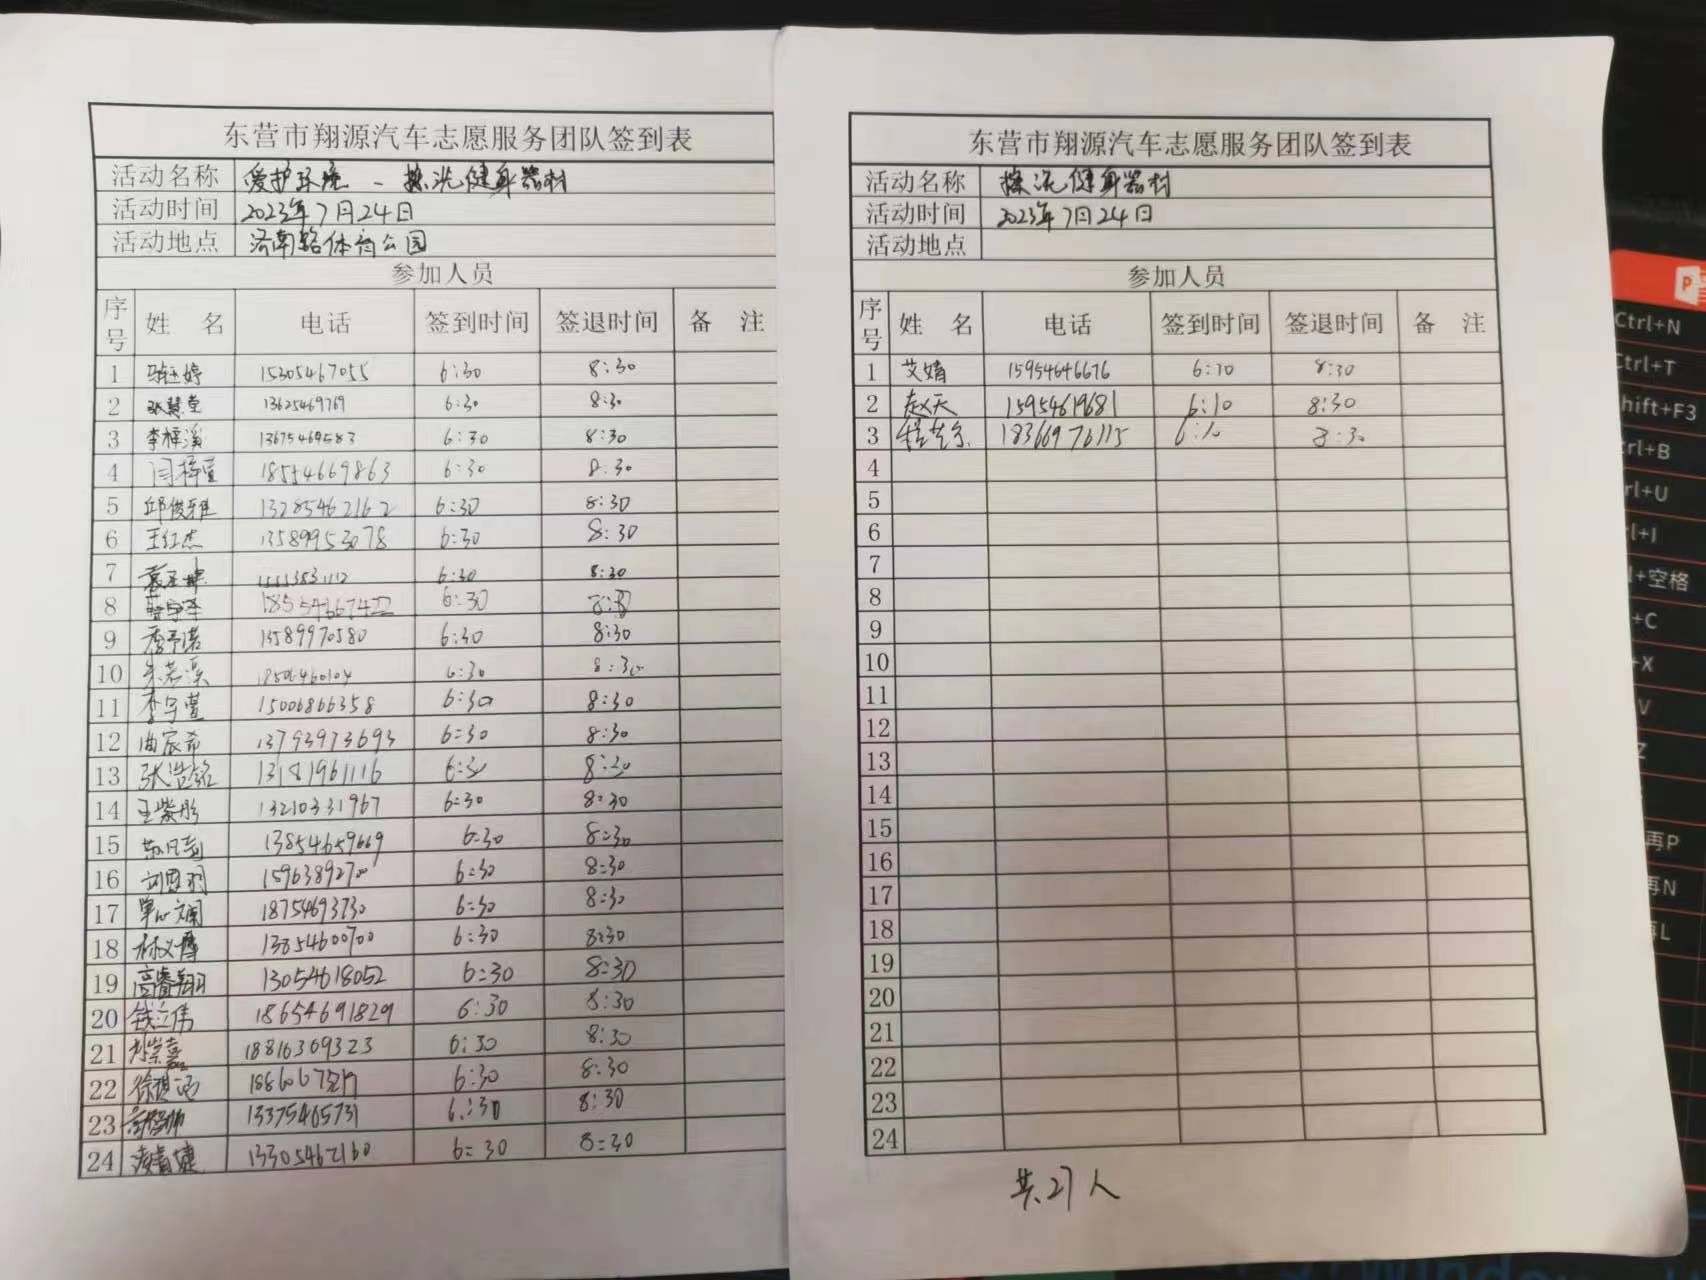 东营市翔源汽车志愿服务团队签到表
活动名称 爱护环境、擦洗健身器材
活动时间 2023年7月24日
活动地点 济南路体育公园
参加人员
序号 姓名 电话 签到时间 签退时间 备注
1 15305467055 6:30 8:30
2 张慧莹 13625469769 6:30 8:30
3 李梓溪 13675469583 6:30 8:30
4 闫梓萱 18554669863 6:30 8:30
5 邱俊雅 13285462162 6:30 8:30
6 王红杰 13589953078 6:30 8:30
7 6:30 8:30
8 18554667422 6:30 8:30
9 季予诺 13589970580 6:30 8:30
10 朱若溪 6:30 8:30
11 李宇萱 15006866358 6:30 8:30
12 曲宸希 13793973693 6:30 8:30
13 张浩铭 13181961116 6:30 8:30
14 王紫彤 13210331967 6:30 8:30
15 13854659669 6:30 8:30
16 15963892700 6:30 8:30
17 单心斓 18754693730 6:30 8:30
18 林义博 13854600700 6:30 8:30
19 高睿翔 13054618052 6:30 8:30
20 钱立伟 18654691829 6:30 8:30
21 18816309323 6:30 8:30
22 6:30 8:30
23 13375465731 6:30 8:30
24 13305462160 6:30 8:30
东营市翔源汽车志愿服务团队签到表
活动名称 擦洗健身器材
活动时间 2023年7月24日
活动地点
参加人员
序号 姓名 电话 签到时间 签退时间 备注
1 艾婧 15954646676 6:10 8:30
2 赵天 15954619681 6:10 8:30
3 18366976115 6:10 8:30
4
5
6
7
8
9
10
11
12
13
14
15
16
17
18
19
20
21
22
23
24
共27人
Ctrl+N
Ctrl+T
Shift+F3
Ctrl+B
Ctrl+U
+空格
+C
+X